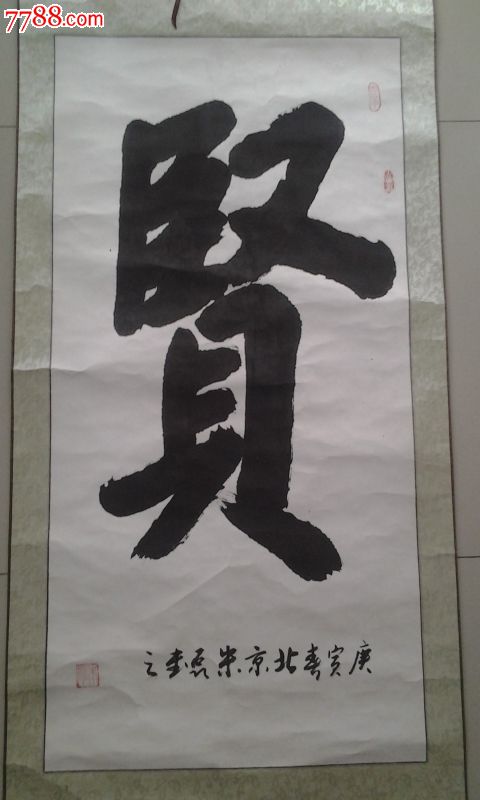 7788.com
賢
庚寅春北京米磊書之